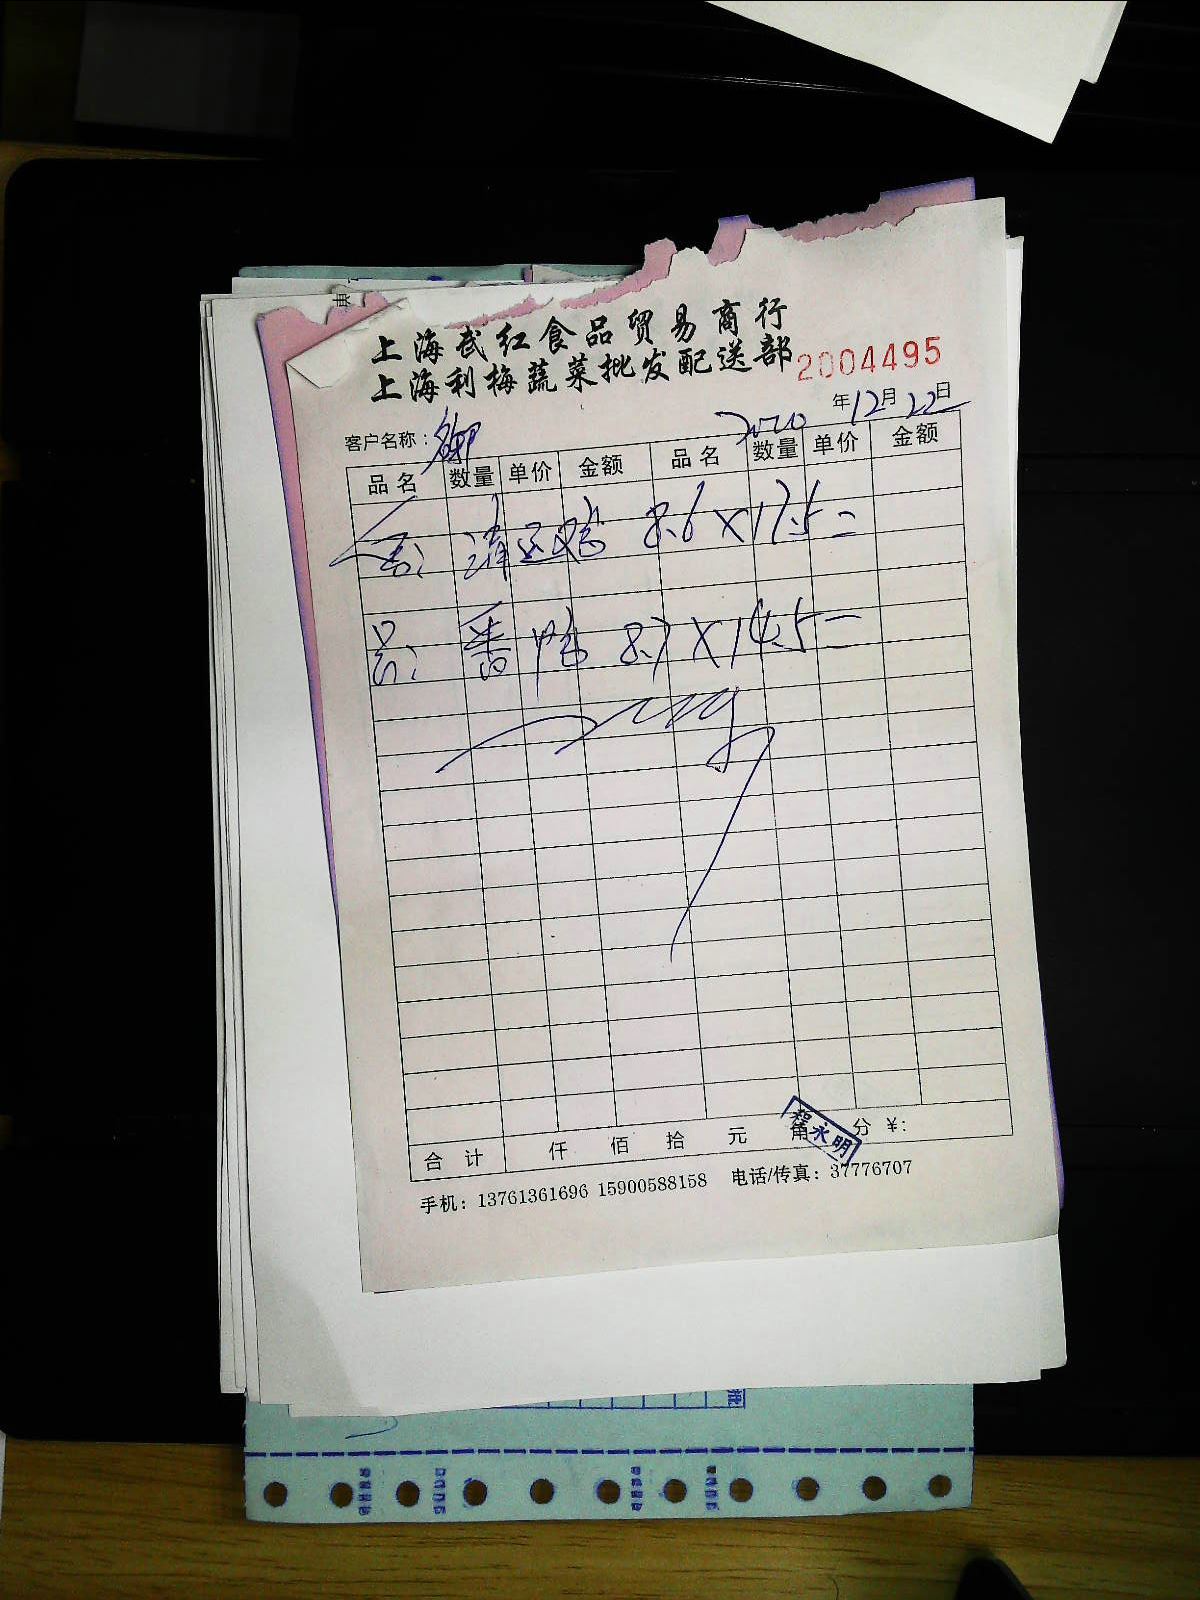 上海武红食品贸易商行
上海利梅蔬菜批发配送部
2004495
2020年12月22日
客户名称：
品名 数量 单价 金额 品名 数量 单价 金额
清远鸡 8.6×17.5=
番鸭 8.7×14.5=
合计 仟 佰 拾 元 角 分 ¥:
程永明
手机：13761361696 15900588158 电话/传真：37776707